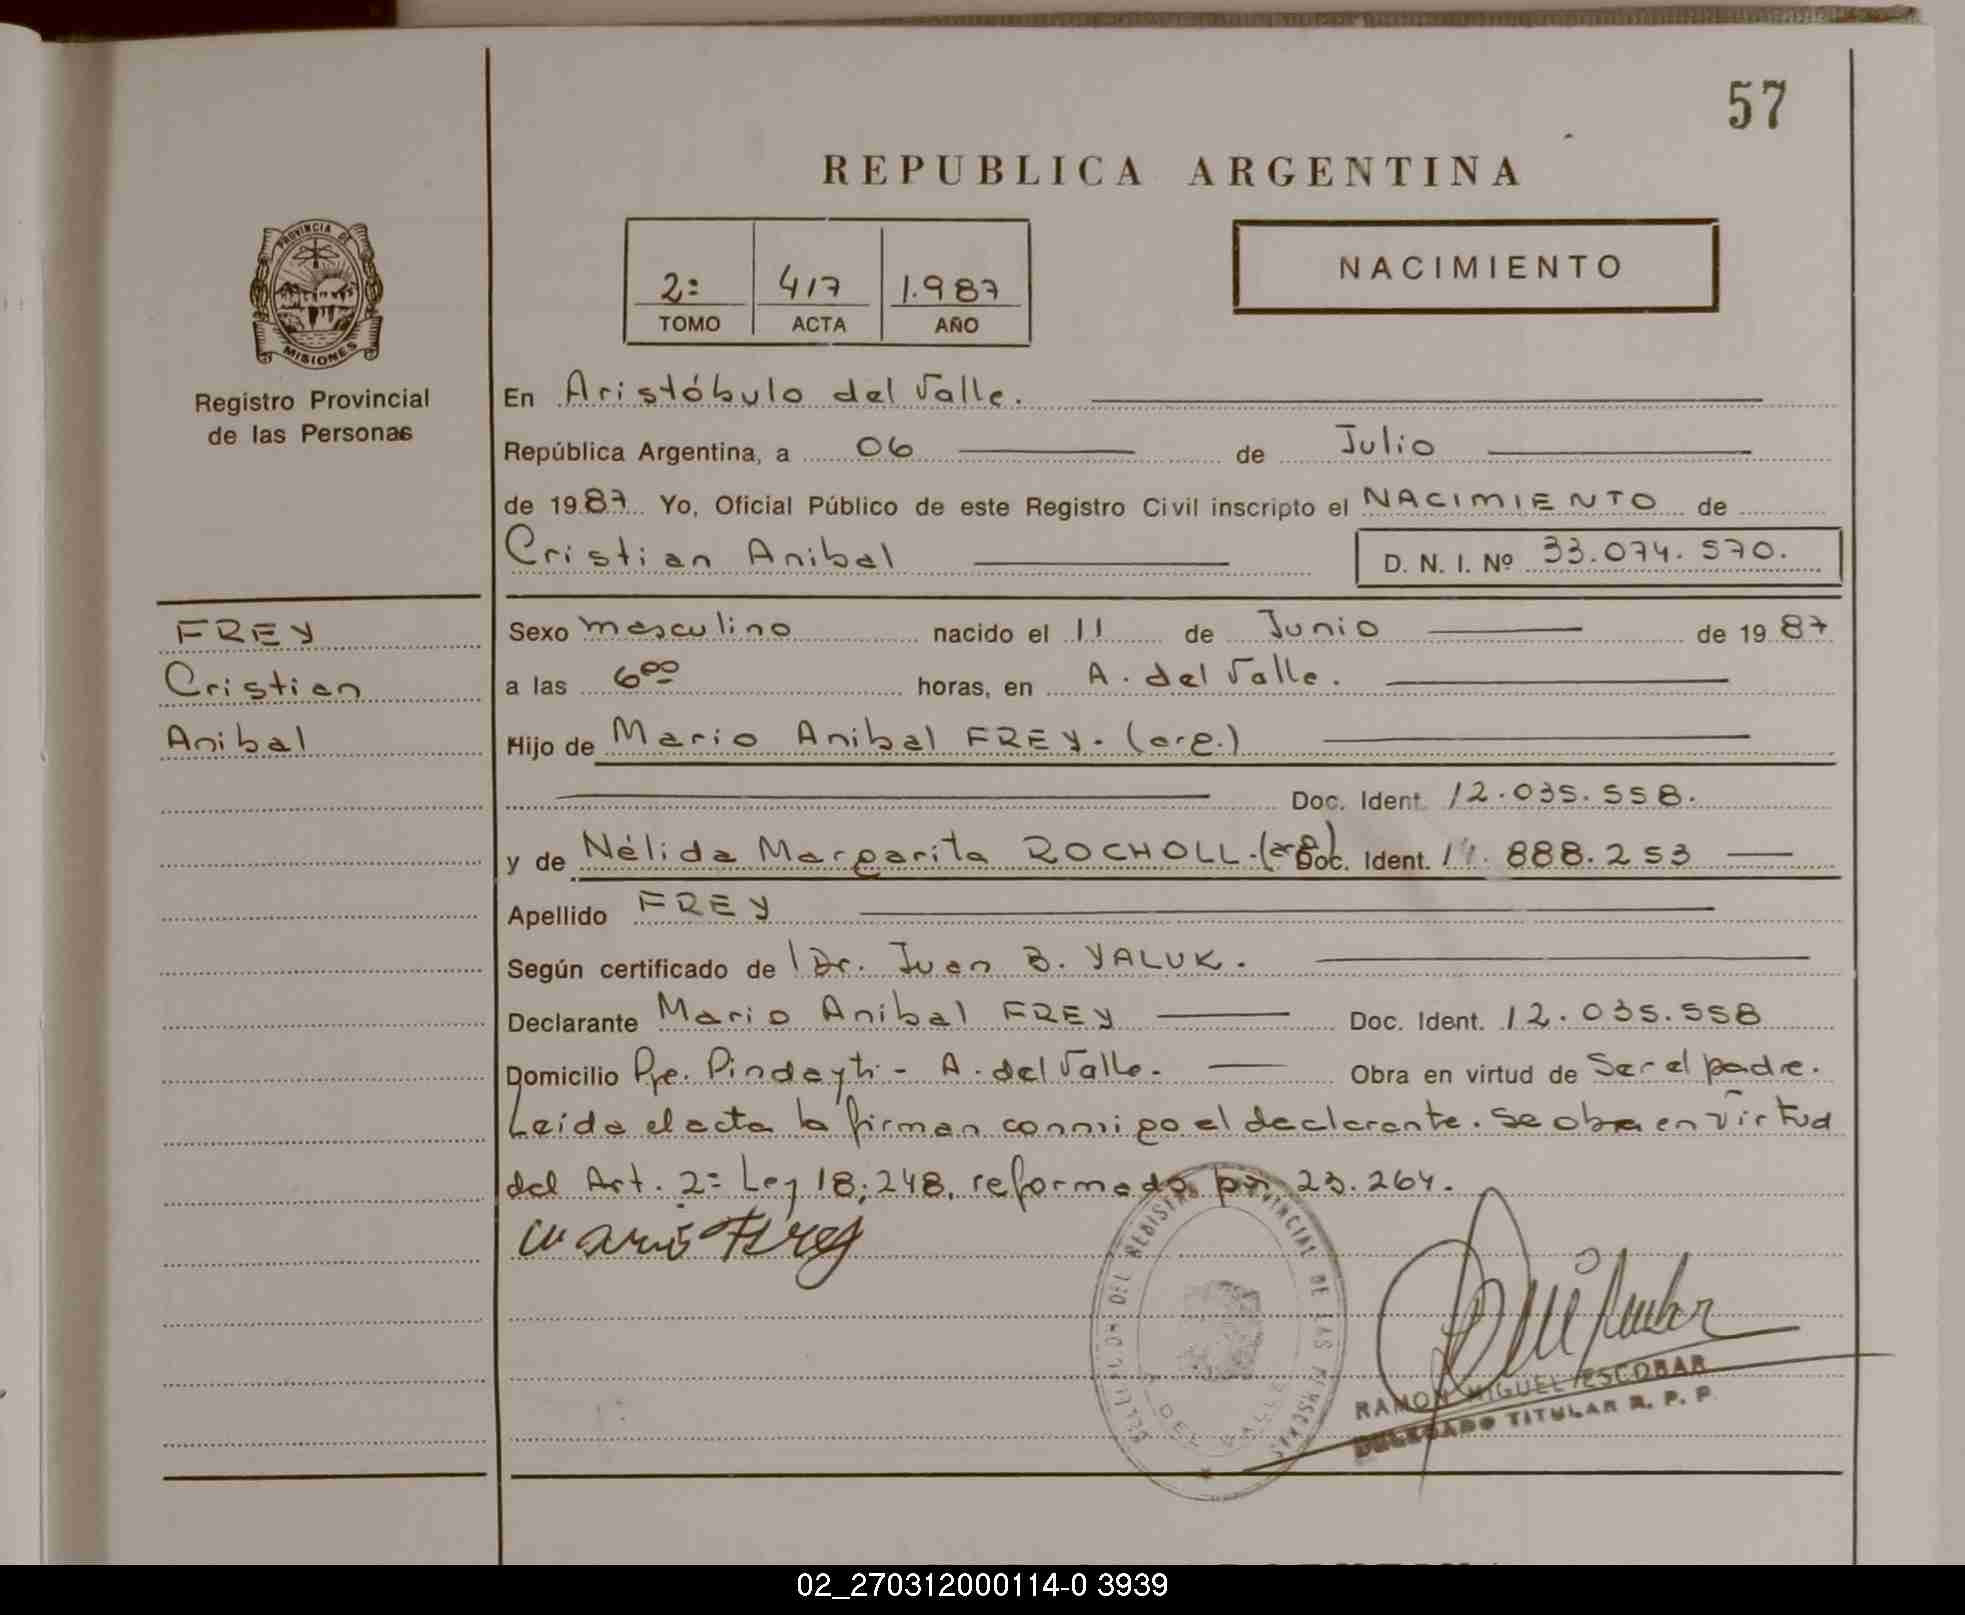 57
REPUBLICA ARGENTINA
PROVINCIA DE
MISIONES
Registro Provincial
de las Personas
2º 417 1.987
TOMO ACTA AÑO
NACIMIENTO
En Aristóbulo del Valle.
República Argentina, a 06 de Julio
de 1987 Yo, Oficial Público de este Registro Civil inscripto el NACIMIENTO de
Cristian Anibal D. N. I. Nº 33.074.570.
FREY
Cristian
Anibal
Sexo masculino nacido el 11 de Junio de 1987
a las 6⁰⁰ horas, en A. del Valle.
Hijo de Mario Anibal FREY. (arg.)
Doc. Ident. 12.035.558.
y de Nélida Margarita ROCHOLL.(arg) Doc. Ident. 888.253
Apellido FREY
Según certificado de Dr. Juan B. YALUK.
Declarante Mario Anibal FREY Doc. Ident. 12.035.558
Domicilio Pje. Pindayti - A. del Valle. Obra en virtud de Ser el padre.
Leída el acta la firman conmigo el declarante. Se obra en virtud
del Art. 2º Ley 18.248, reformado por 23.264.
Mario Frey
DEL REGISTRO PROVINCIAL DE LAS PERSONAS
DEL VALLE
RAMON MIGUEL ESCOBAR
DELEGADO TITULAR R. P. P.
02_270312000114-0 3939